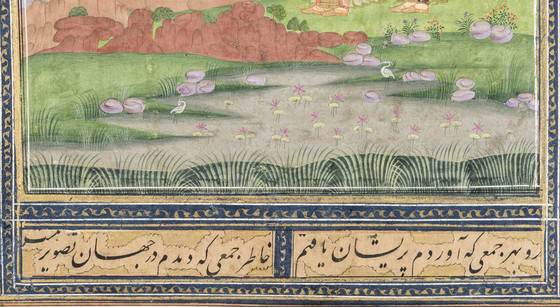 رو بهر جمعی که آوردم پریشان یافتم
خاطر جمعی که دیدم در جهان تصویر